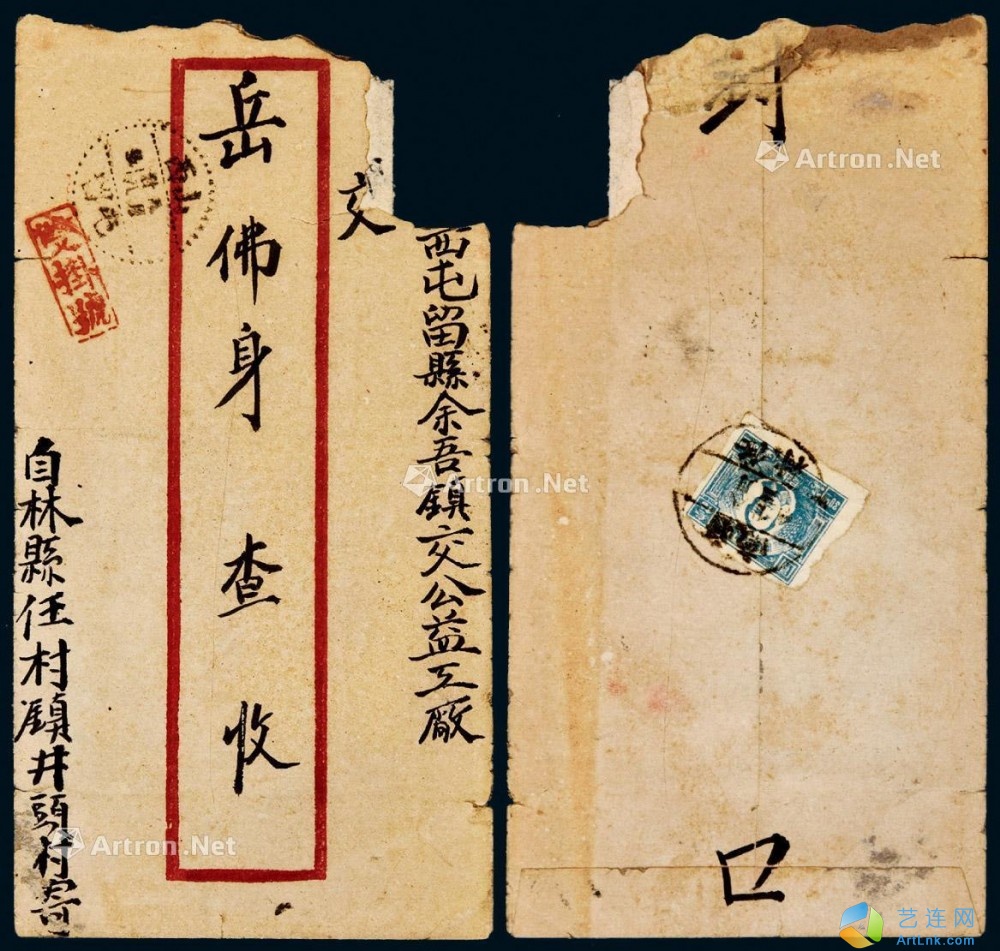 西屯留縣余吾鎮交公益工廠
交
岳佛身查收
自林縣任村鎮井頭村寄
掛號
封
口
Artron.Net
Artron.Net
Artron.Net
艺连网
ArtLnk.com